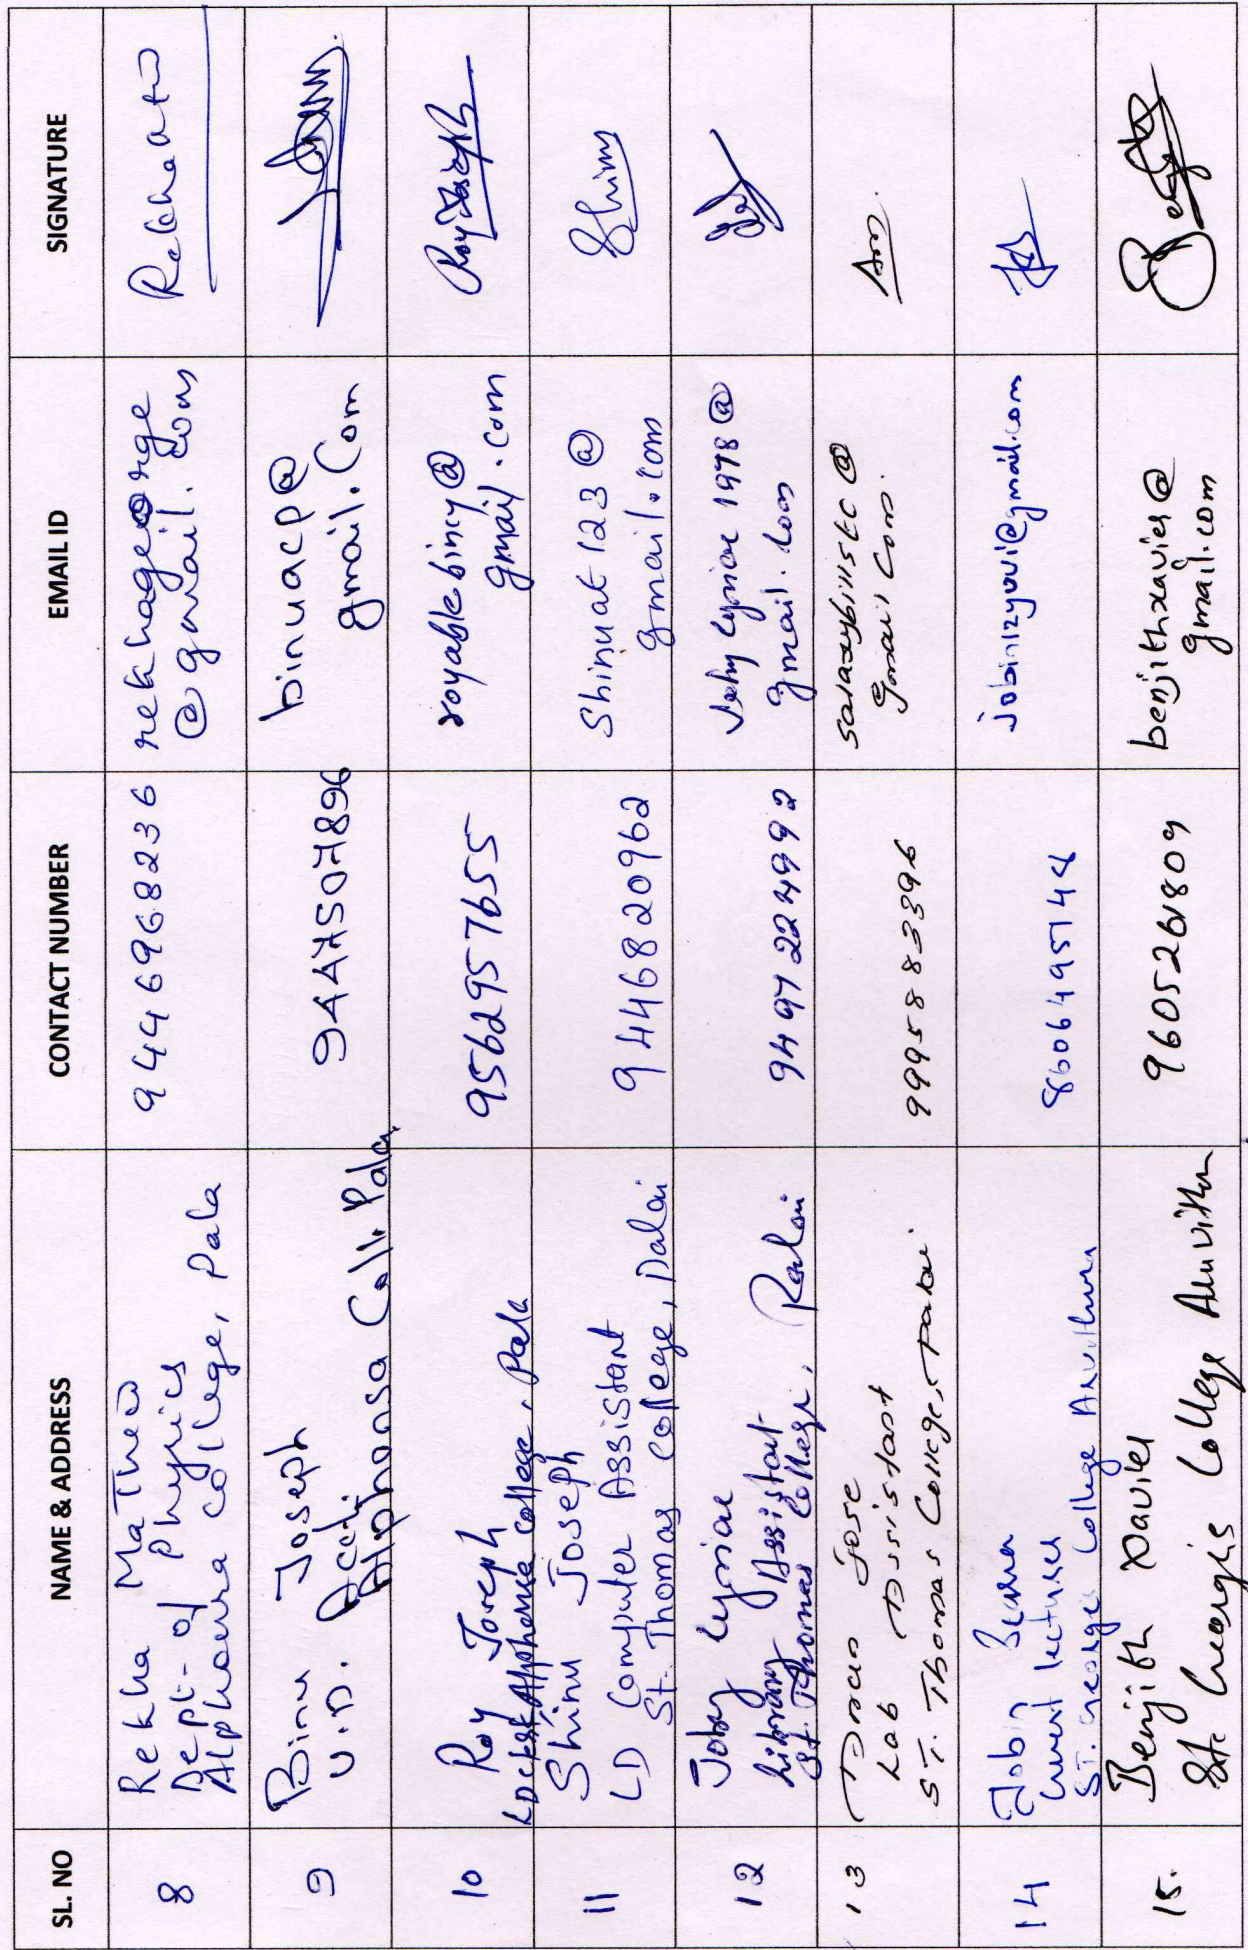 SL. NO
NAME & ADDRESS
CONTACT NUMBER
EMAIL ID
SIGNATURE
8
Rekha Mathew
Dept- of Physics
Alphonsa College, Pala
9446968236
rekhageorge
@gmail.com
9
Binu Joseph
U.D. Acctt.
Alphonsa Coll. Pala
9447507896
binuacp@
gmail.Com
10
Roy Joseph
Alphonsa College, Pala
9562957655
royablebincy@
gmail.com
Roy Joseph
11
Shinu Joseph
LD Computer Assistant
St. Thomas College, Palai
9446820962
Shinuat123@
gmail.com
Shinu
12
Joby Cyriac
Library Assistant
St. Thomas College, Palai
9497224992
1978@
gmail.com
13
Jose
Lab Assistant
ST. Thomas College, Palai
9995883396
@
gmail Com.
14
Jobin
Guest lecturer
ST. George College Aruvithura
8606495144
@gmail.com
15.
Benjith Xavier
St. Georges College Aruvithura
9605261809
benjithxavier@
gmail.com